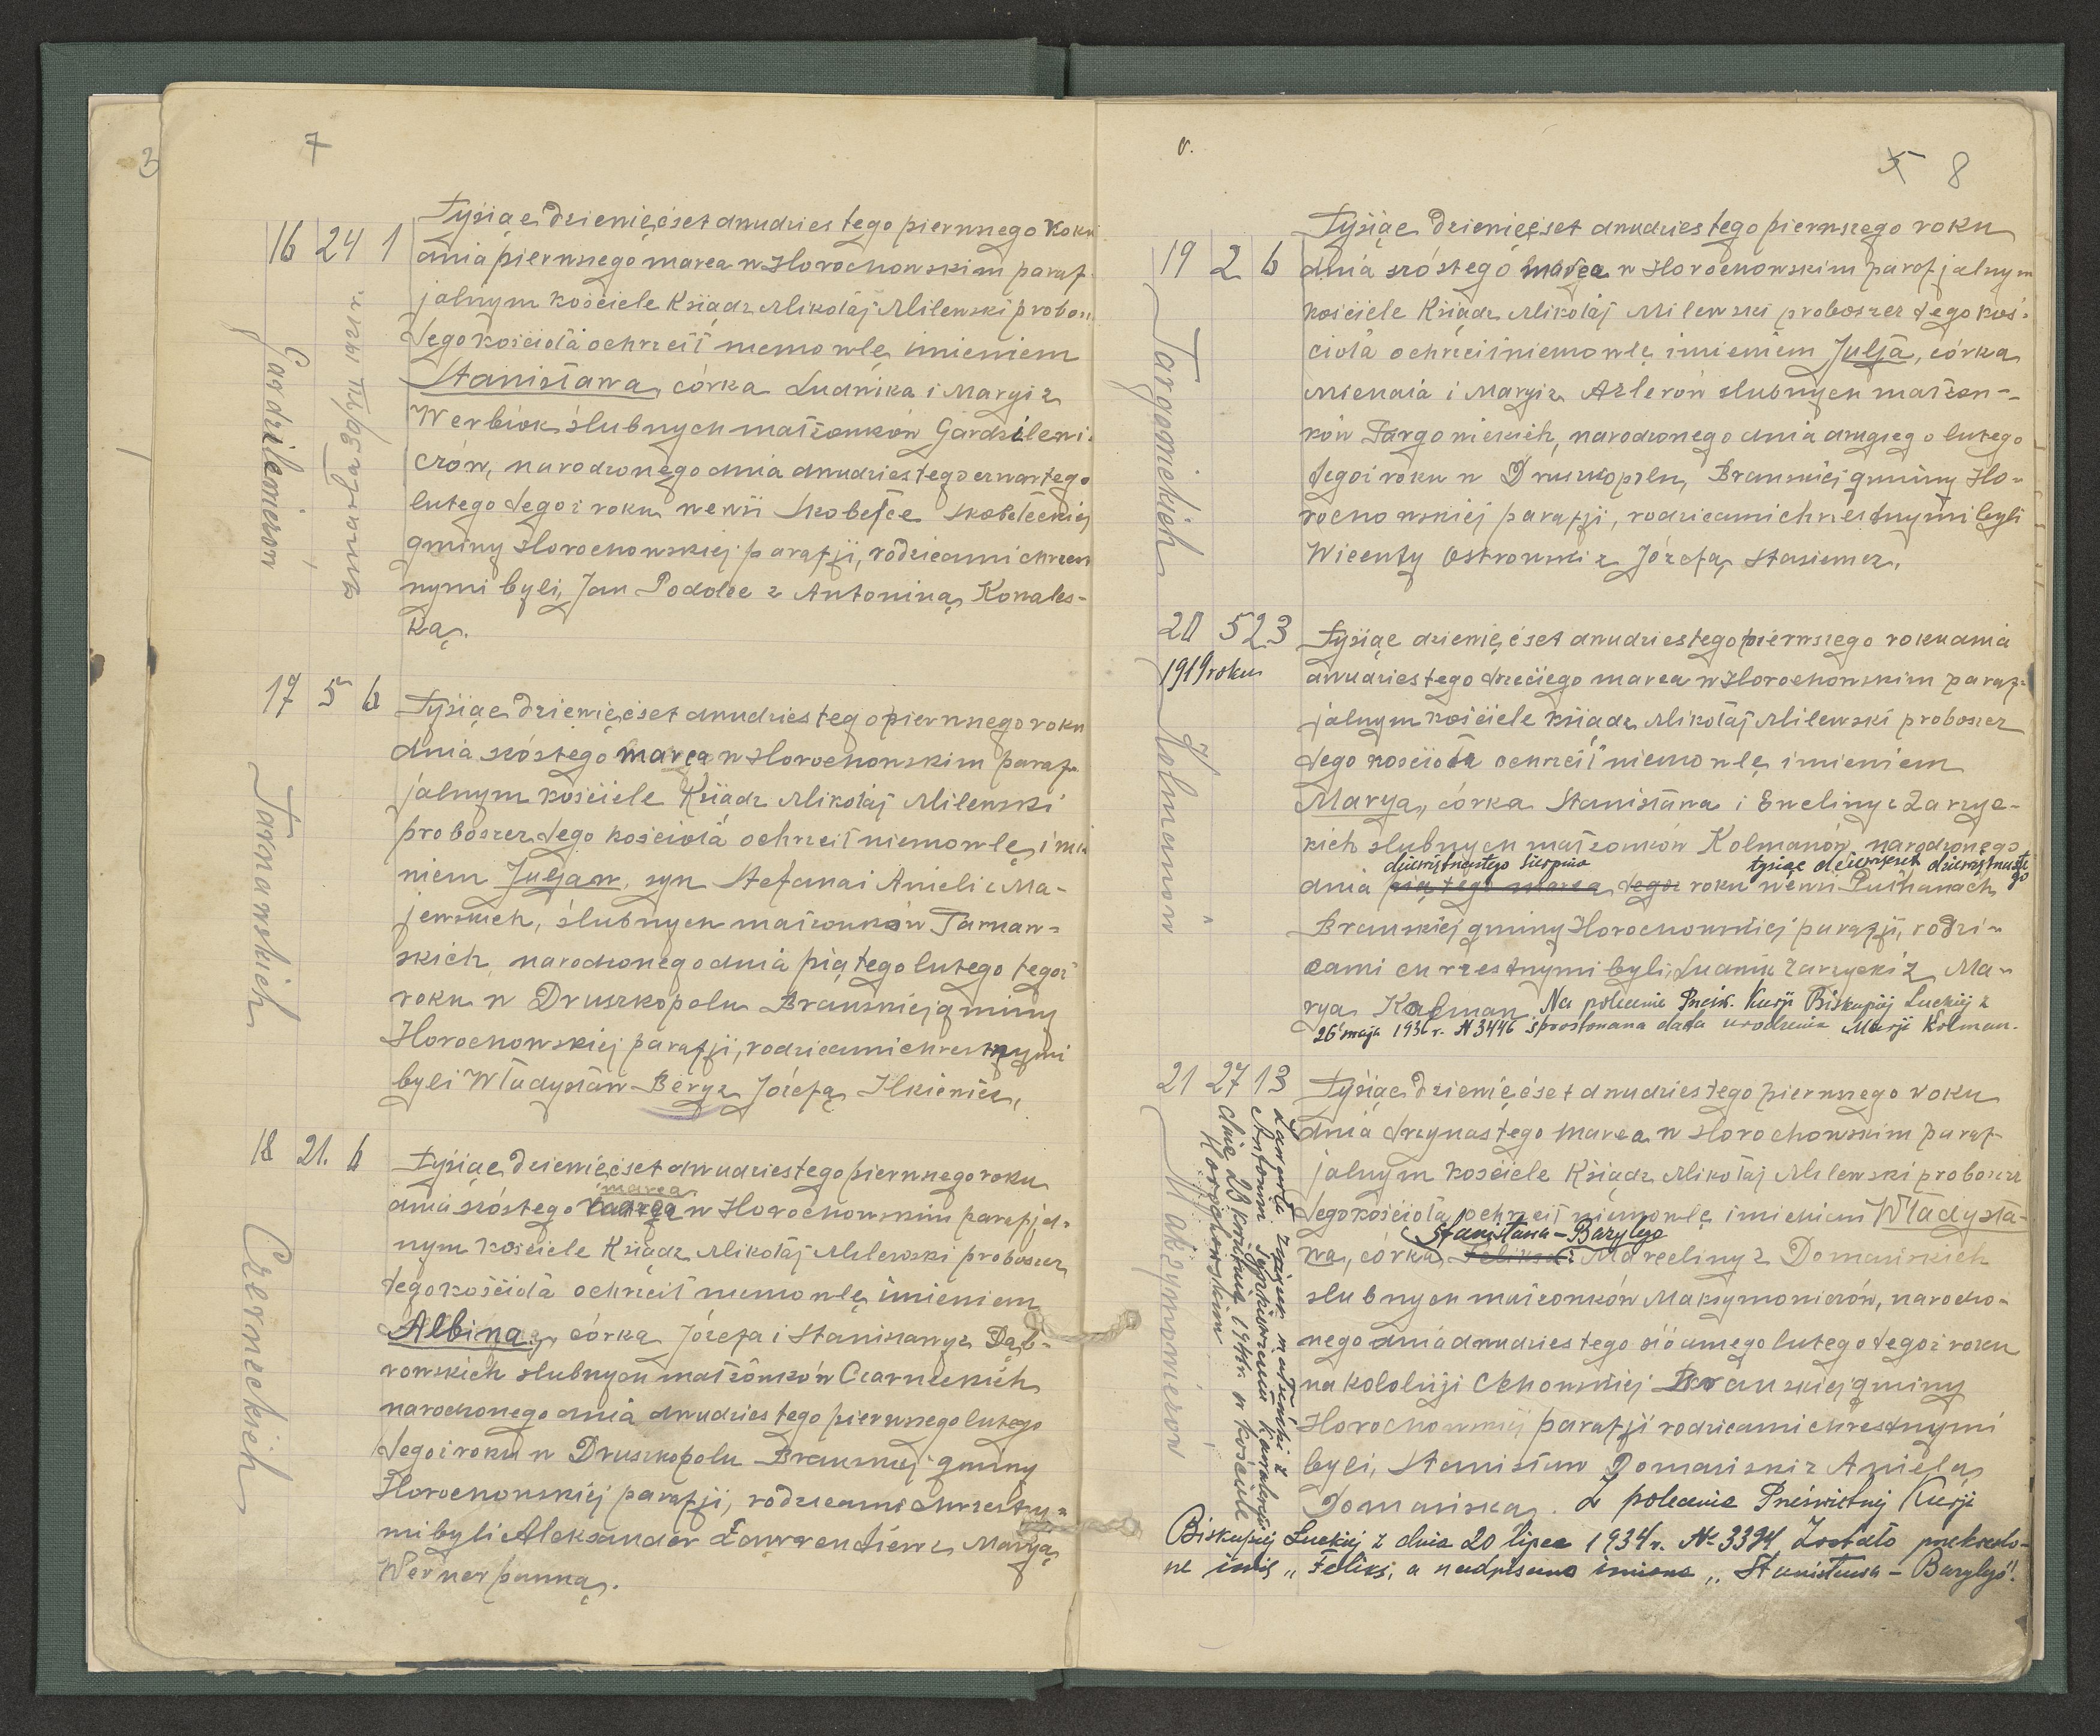 3
7
16 24 1
Tysiąc dziewięćset dwudziestego pierwszego roku
dnia pierwszego marca w Horochowskim paraf-
jalnym kościele Ksiądz Mikołaj Milewski probosz
tego kościoła ochrzcił niemowlę imieniem
Stanisława, córka Ludwika i Maryi z
Werbiok ślubnych małżonków Gardzilewi-
czów, narodzonego dnia dwudziestego czwartego
lutego tegoż roku we wsi Skobełce Skobełeckiej
gminy Horochowskiej parafji, rodzicami chrzest
nymi byli, Jan Podolec z Antoniną Kowales-
ką.
Gardzilewiczow
zmarła 30/VII 1921 r.
17 5 6
Tysiąc dziewięćset dwudziestego pierwszego roku
dnia szóstego marca w Horochowskim paraf-
jalnym kościele Ksiądz Mikołaj Milewski
proboszcz tego kościoła ochrzcił niemowlę imie
niem Juljan, syn Stefana i Anieli z Ma-
jewskich, ślubnych małżonków Tarnaw-
skich, narodzonego dnia piątego lutego tegoż
roku w Druszkopolu Brańskiej gminy
Horochowskiej parafji, rodzicami chrestnymi
byli Władysław Bery z Józefą Ilkiewicz,
Tarnawskich
18 21. 6
Tysiąc dziewięćset dwudziestego pierwszego roku
marca
dnia szóstego marca w Horochowskim parafjal-
nym kościele Ksiądz Mikołaj Milewski proboszcz
tego kościoła ochrzcił niemowlę imieniem
Albina, córka Józefa i Stanisławy z Dąb-
rowskich ślubnych małżonków Czarneckich
narodzonego dnia dwudziestego pierwszego lutego
tegoż roku w Druszkopolu Brańskiej gminy
Horochowskiej parafji, rodzicami chrzestny-
mi byli Aleksander Ławrentiew z Maryą
Werner panną.
Czerneckich
v.
5 8
19 2 6
Tysiąc dziewięćset dwudziestego pierwszego roku
dnia szóstego marca w Horochowskim parafjalnym
kościele Ksiądz Mikołaj Milewski proboszcz tego koś-
cioła ochrzcił niemowlę imieniem Julja, córka
Michała i Maryi z Azlerów ślubnych małżon-
ków Targonickich, narodzonego dnia drugiego lutego
tegoż roku w Druszkopolu, Brańskiej gminy Ho-
rochowskiej parafji, rodzicami chrzestnymi byli
Wicenty Ostrowski z Józefą Stasiewicz.
Targonickich
20 5 23
1919 roku
Tysiąc dziewięćset dwudziestego pierwszego roku dnia
dwudziestego trzeciego marca w Horochowskim paraf-
jalnym kościele ksiądz Mikołaj Milewski proboszcz
tego kościoła ochrzcił niemowlę imieniem
Marya, córka Stanisława i Eweliny z Zarzyc-
kich ślubnych małżonków Kolmanów, narodzonego
dziewiętnastego sierpnia tysiąc dziewięćset dziewiętnaste
go
dnia piątego marca tegoż roku we wsi Pustkanach
Brańskiej gminy Horochowskiej parafji, rodzi-
cami chrzestnymi byli, Ludwik Zarzycki z Ma-
rya Kolman. Na polecenie Prześw. Kurji Biskupiej Łuckiej z
26 maja 1936 r. N 3446 sprostowana data urodzenia Marji Kolman.
Kolmanów
21 27 13
Tysiąc dziewięćset dwudziestego pierwszego roku
dnia trzynastego marca w Horochowskim paraf-
jalnym kościele Ksiądz Mikołaj Milewski proboszcz
tego kościoła ochrzcił niemowlę imieniem Władysła-
Stanisława-Bazylego
wa, córka Feliksa i Marceliny z Domańskich
ślubnych małżonków Maksymowiczów, narodzo-
nego dnia dwudziestego siódmego lutego tegoż roku
na kolonji Cehowskiej Brańskiej gminy
Horochowskiej parafji rodzicami chrestnymi
byli, Stanisław Domański z Anielą
Domańską. Z polecenia Prześwietnej Kurji
Biskupiej Łuckiej z dnia 20 lipca 1934 r. № 3394 Zostało przekreślo-
ne imię „Feliks", a nadpisano imiona „Stanisława-Bazylego".
Maksymowiczow
Zawarła związek małżeński z
Antonim
dnia 23 kwietnia 1944 r. w kościele
Horochowskim